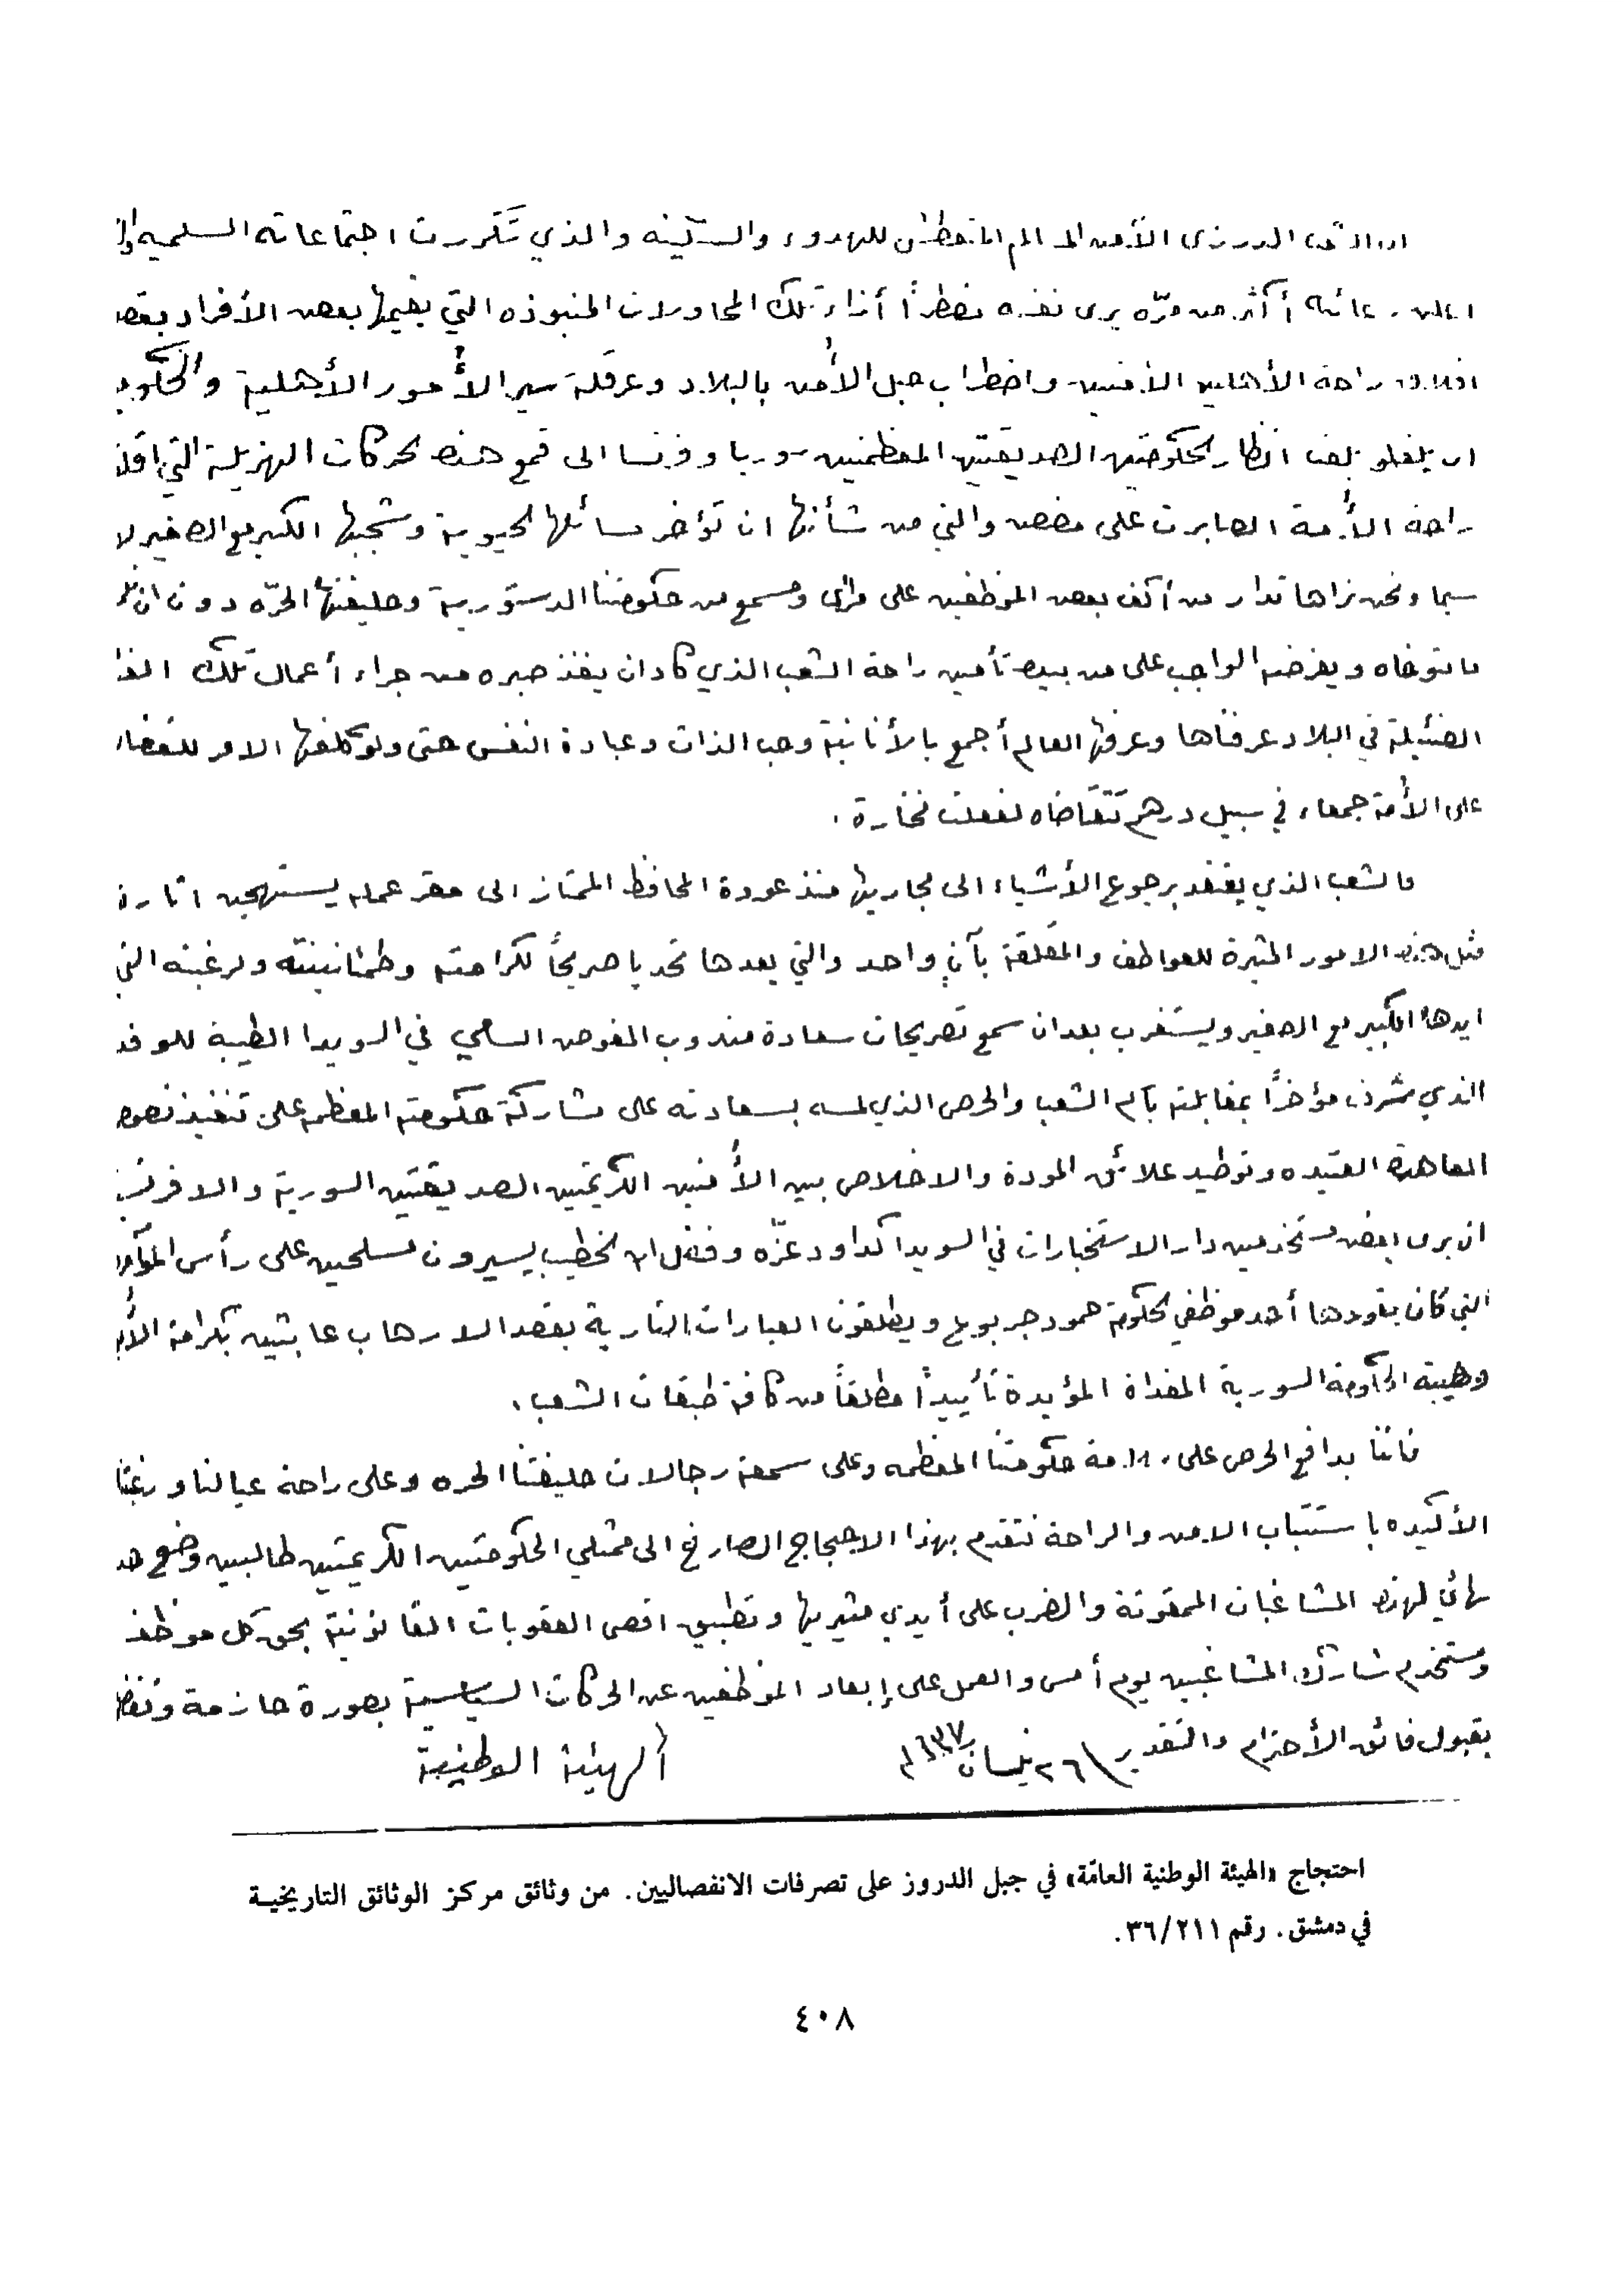 الدرزي الأمن المسالم المتعطش للهدوء والسكينه والذي تكررت اجتماعاته السلميه
أكثر من مرّه يرى نفسه مضطراً أزاء تلك المحاولات المنبوذه التي يقيمها بعض الأفراد بقصد
راحة الأهلين الأمنين واضطراب حبل الأمن بالبلاد وعرقلة سير الأمور الأهلية
ان يلفت أنظار الحكومتين الصديقتين المعظمتين سوريا وفرنسا الى قمع هذه الحركات الهزيلة التي
راحة الأمة الصابرة على مضض والتي من شأنها ان تؤخر مسائلها الحيوية وشجبها الكبير مع الصغير لا
سيما ونحن نراها تدار من أكف بعض الموظفين على مرأى ومسمع من حكومتنا الدستورية وحليفتها الحرّه دون ان
ما نتوخاه ويفرضه الواجب على من بيده تأمين راحة الشعب الذي كاد ان يفقد صبره من جراء أعمال تلك
الضئيلة في البلاد عرفناها وعرفها العالم أجمع بالأنانية وحب الذات وعبادة النفس حتى ولو كلفها الامر للقضاء
على الأمة جمعاء في سبيل درهم تتقاضاه لفعلت مختارة .
فالشعب الذي يعتقد برجوع الأشياء الى مجاريها منذ عودة المحافظ الممتاز الى مقر عمله يستهجن اثارة
مثل هذه الامور المثيرة للعواطف والمقلقة بآنٍ واحد والتي يعدها تحديا صريحاً لكرامته وطمئانينته ولرغبته التي
ايدها الكبير مع الصغير ويستغرب بعد ان سمع تصريحات سعادة مندوب المفوض السامي في السويدا الطيبة للوفد
الذي تشرف مؤخراً بمقابلته بآسم الشعب والحرص الذي لمسه بسعادته على مشاركة حكومته المعظمه على تنفيذ نصوص
المعاهدة العتيده وتوطيد علائق المودة والاخلاص بين الأمتين الكريمتين الصديقتين السورية والافرنسية
ان يرى بعض مستخدمين دار الاستخبارات في السويدا كداود عزّه وفضل الله الخطيب يسيرون مسلحين على رأس
التي كان يقودها أحد موظفي الحكومة حمود جربوع ويطلقون العبارات النارية بقصد الارهاب عابثين بكرامة
وهيبة الحكومة السورية المفداة المؤيدة تأييداً مطلقاً من كافة طبقات الشعب .
فاننا بدافع الحرص على حكومتنا المعظمه وعلى سمعة رجالات حليفتنا الحره وعلى راحة عيالنا ورغبتنا
الأكيده باستتباب الامن والراحة نتقدم بهذا الاحتجاج الصارخ الى ممثلي الحكومتين الكريمتين طالبين وضع حد
نهائي لهذه المشاغبات الممقوتة والضرب على أيدي مثيريها وتطبيق اقصى العقوبات القانونية بحق كل موظف
ومستخدم شارك المشاغبين يوم أمس والعمل على إبعاد الموظفين عن الحركات السياسية بصورة حازمة
بقبول فائق الأحترام والتقدير ٢٦ نيسان الهيئة الوطنية
احتجاج «الهيئة الوطنية العامّة» في جبل الدروز على تصرفات الانفصاليين. من وثائق مركز الوثائق التاريخيـة
في دمشق. رقم ٣٦/٢١١.
٤٠٨